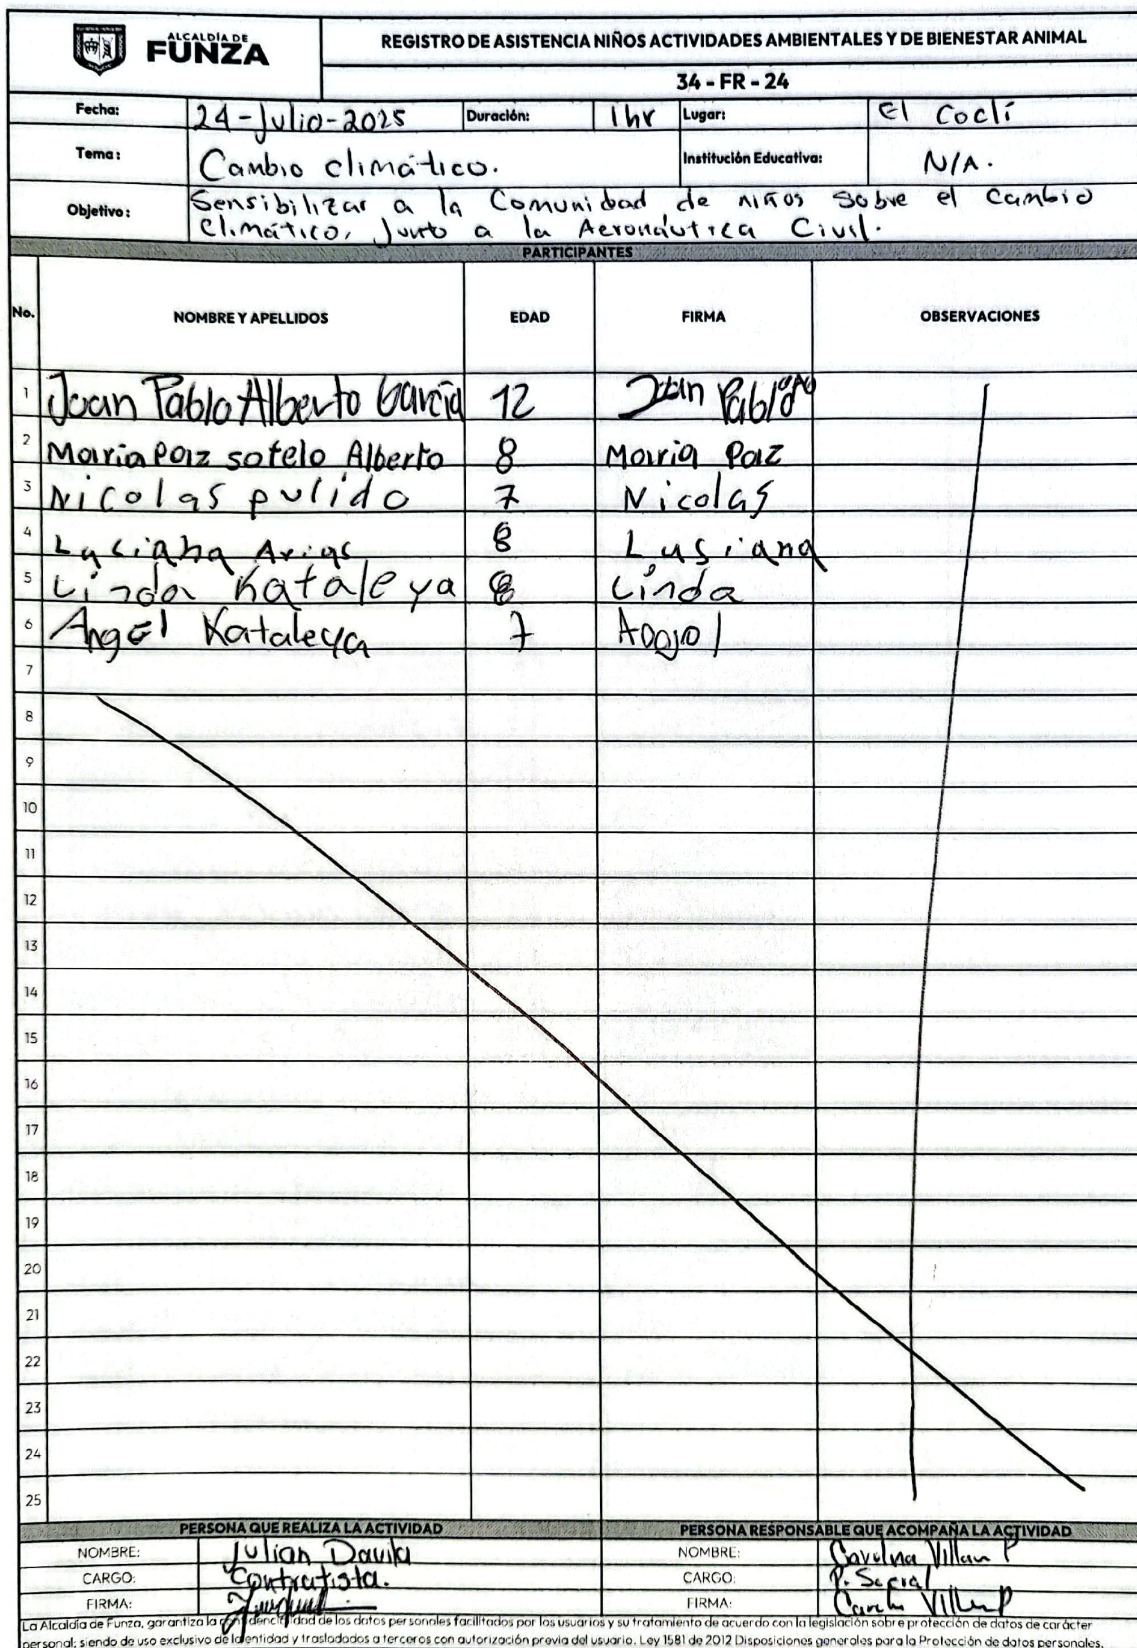 ALCALDÍA DE
FUNZA
REGISTRO DE ASISTENCIA NIÑOS ACTIVIDADES AMBIENTALES Y DE BIENESTAR ANIMAL
34 - FR - 24
Fecha: 24-Julio-2025 Duración: 1hr Lugar: El Coclí
Tema: Cambio climático. Institución Educativa: N/A.
Objetivo: Sensibilizar a la Comunidad de niños sobre el Cambio
Climático, Junto a la Aeronáutica Civil.
PARTICIPANTES
No. NOMBRE Y APELLIDOS EDAD FIRMA OBSERVACIONES
1 Joan Pablo Alberto García 12 Joan Pablo
2 Maria Paz sotelo Alberto 8 Maria Paz
3 Nicolas pulido 7 Nicolas
4 Lusiana Arias 8 Lusiana
5 Linda Kataleya 8 Linda
6 Angel Kataleya 7
7
8
9
10
11
12
13
14
15
16
17
18
19
20
21
22
23
24
25
PERSONA QUE REALIZA LA ACTIVIDAD PERSONA RESPONSABLE QUE ACOMPAÑA LA ACTIVIDAD
NOMBRE: Julian Davila NOMBRE: Carolina Villan P
CARGO: Contratista. CARGO: P. Social
FIRMA: FIRMA:
La Alcaldía de Funza, garantiza la confidencialidad de los datos personales facilitados por los usuarios y su tratamiento de acuerdo con la legislación sobre protección de datos de carácter
personal; siendo de uso exclusivo de la entidad y trasladados a terceros con autorización previa del usuario. Ley 1581 de 2012 Disposiciones generales para la Protección de datos personales.